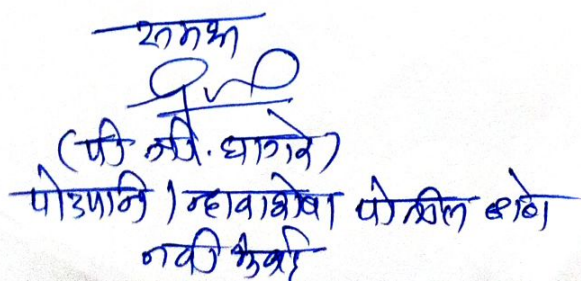 समक्ष
(पी. जी. घागरे)
पोउपनि / न्हावाशेवा पोलीस ठाणे
नवी मुंबई